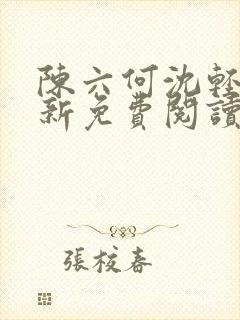 陳六何沈輕
新免費閱讀
張校春